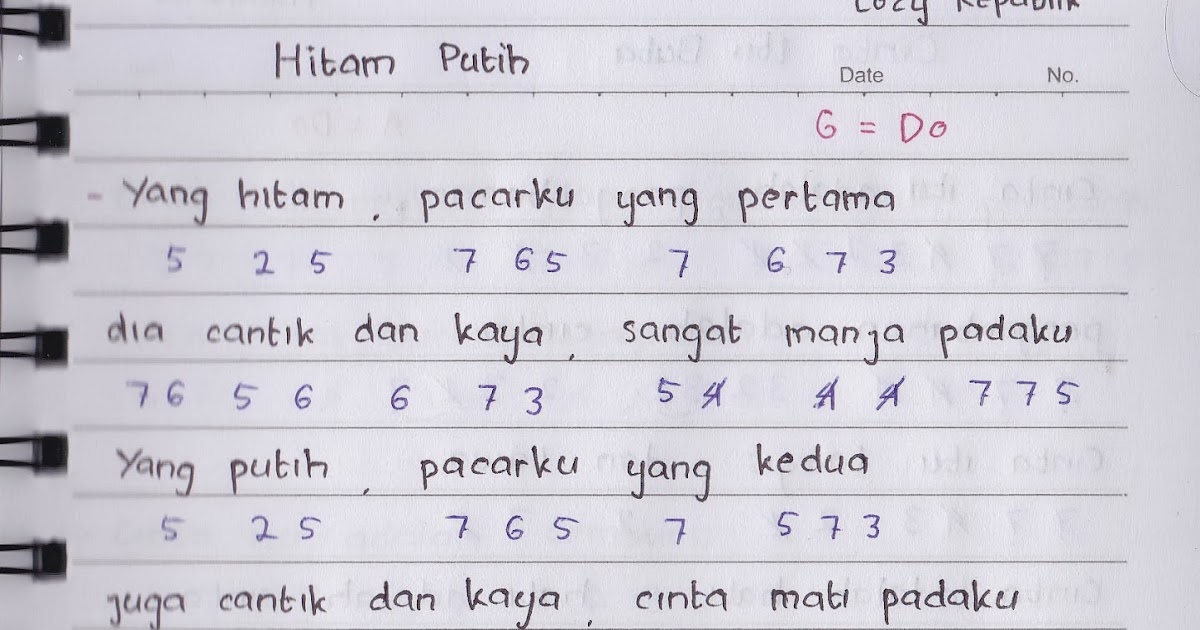 Cozy Republik
Hitam Putih
Date No.
G = Do
- Yang hitam, pacarku yang pertama
5 2 5 7 6 5 7 6 7 3
dia cantik dan kaya, sangat manja padaku
7 6 5 6 6 7 3 5 4̸ 4̸ 4̸ 7 7 5
Yang putih, pacarku yang kedua
5 2 5 7 6 5 7 5 7 3
juga cantik dan kaya, cinta mati padaku